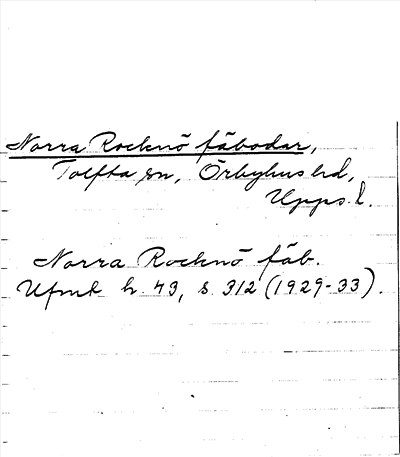 Norra Rocknö fäbodar,
Tolfta sn, Örbyhus hd,
Upps. l.
Norra Rocknö fäb.
Ufmk h. 43, s. 312 (1929-33).